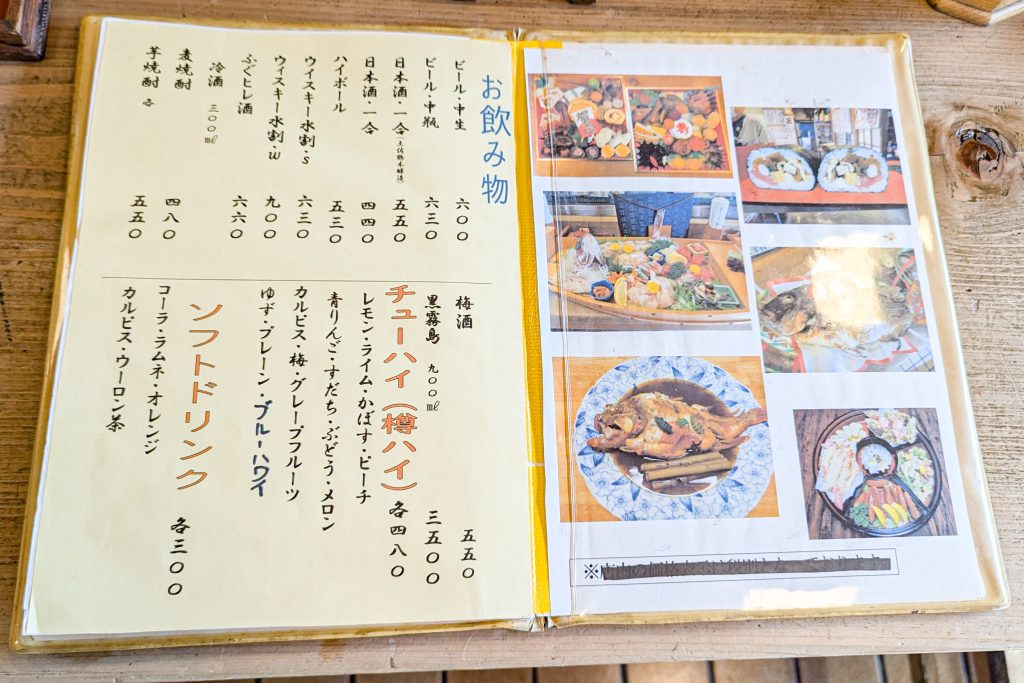 お飲み物
ビール・中生 六〇〇
ビール・中瓶 六三〇
日本酒・一合(土佐鶴本醸造) 五五〇
日本酒・一合 四四〇
ハイボール 五三〇
ウィスキー水割・s 六三〇
ウィスキー水割・w 九〇〇
ふぐヒレ酒 六六〇
冷酒 三〇〇㎖
麦焼酎 四八〇
芋焼酎 各 五五〇
梅酒 五五〇
黒霧島 九〇〇㎖ 三五〇〇
チューハイ(樽ハイ) 各四八〇
レモン・ライム・かぼす・ピーチ
青りんご・すだち・ぶどう・メロン
カルピス・梅・グレープフルーツ
ゆず・プレーン・ブルーハワイ
ソフトドリンク 各三〇〇
コーラ・ラムネ・オレンジ
カルピス・ウーロン茶
※店内の価格表示は税別となっております